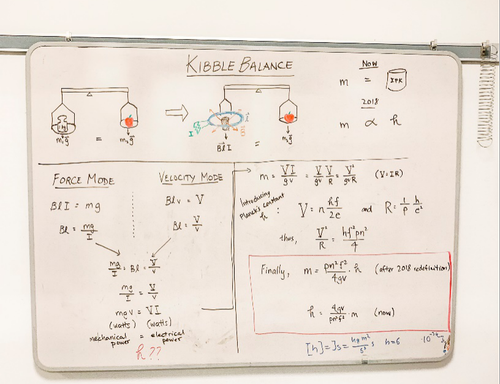 KIBBLE BALANCE
NOW
m = IPK
2018
m ∝ h
mg = mg
BlI = mg
FORCE MODE
BlI = mg
Bl = mg/I
VELOCITY MODE
Blv = V
Bl = V/v
mg/I = Bl = V/v
mg/I = V/v
mgv = VI
(watts) (watts)
mechanical power = electrical power
h??
m = VI/gv = V/gv V/R = V²/gvR (V=IR)
Introducing Planck's constant h: V = n hf/2e and R = 1/p h/e²
thus, V²/R = hf²pn²/4
Finally, m = pn²f²/4gv · h (after 2018 redefinition)
h = 4gv/pn²f² · m (now)
[h] = Js = kg m²/s² s h=6